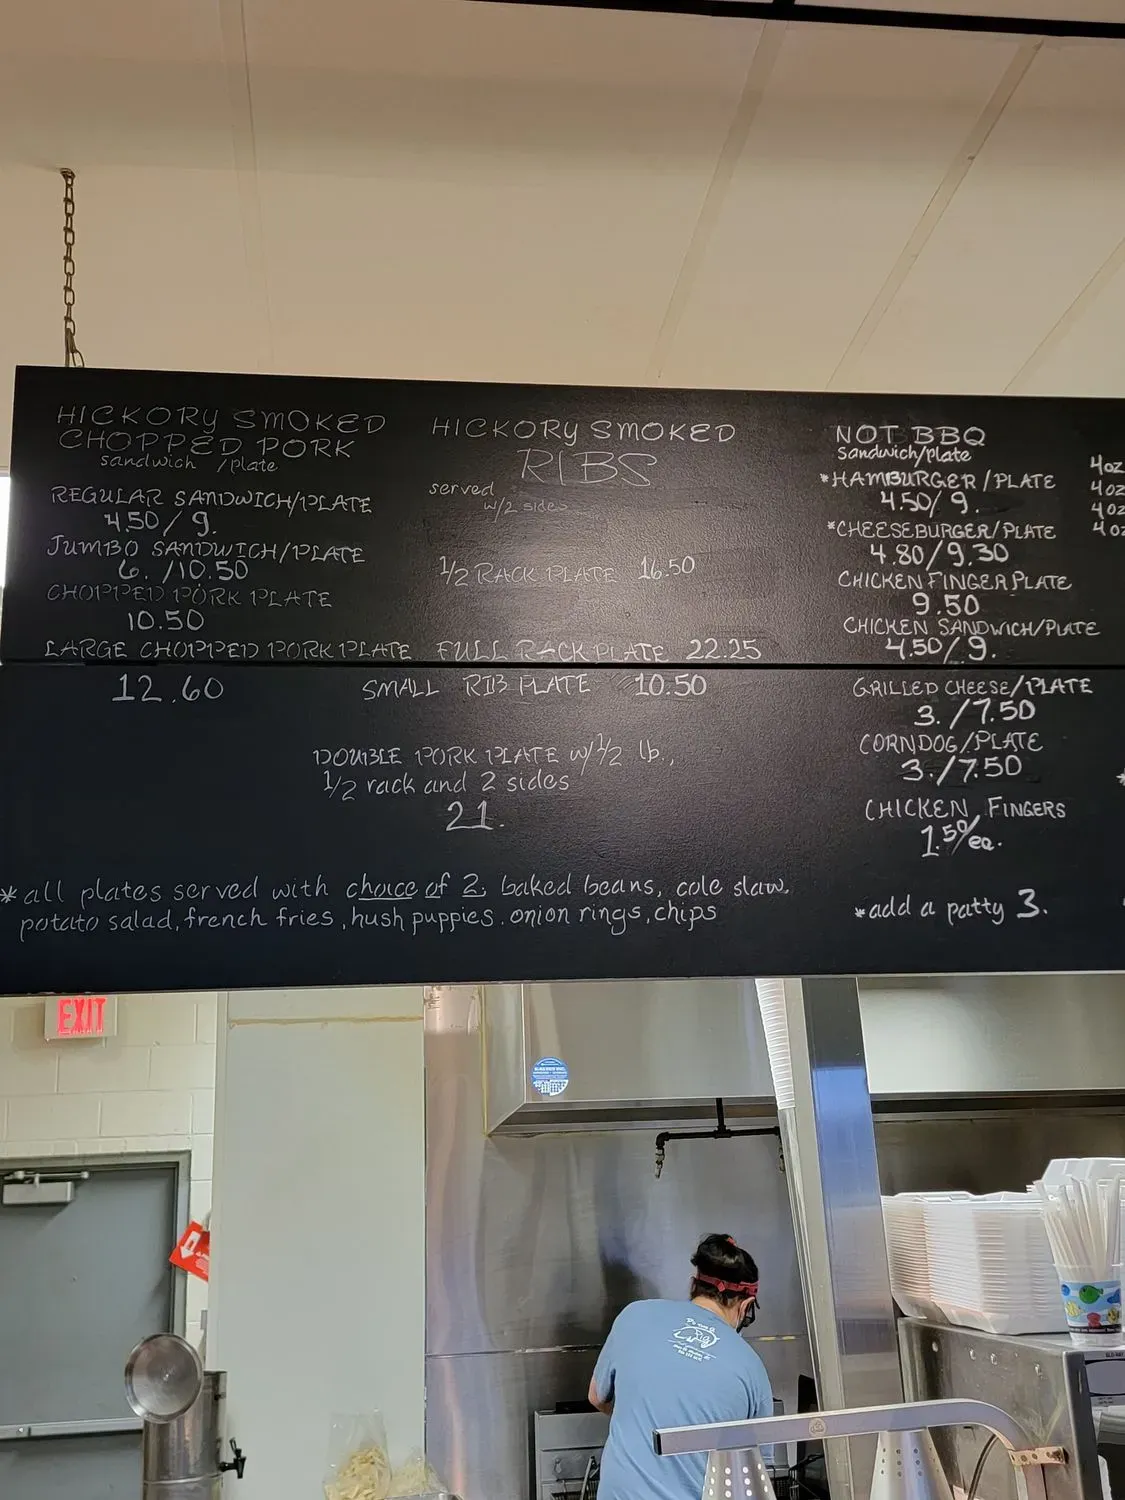 HICKORY SMOKED
CHOPPED PORK
sandwich /plate
REGULAR SANDWICH/PLATE
4.50/ 9.
JUMBO SANDWICH/PLATE
6. /10.50
CHOPPED PORK PLATE
10.50
LARGE CHOPPED PORK PLATE
12.60
HICKORY SMOKED
RIBS
served
w/2 sides
1/2 RACK PLATE 16.50
FULL RACK PLATE 22.25
SMALL RIB PLATE 10.50
DOUBLE PORK PLATE w/ 1/2 lb.,
1/2 rack and 2 sides
21.
*all plates served with choice of 2; baked beans, cole slaw,
potato salad, french fries, hush puppies. onion rings, chips
NOT BBQ
Sandwich/plate
*HAMBURGER/PLATE
4.50/ 9.
*CHEESEBURGER/PLATE
4.80/9.30
CHICKEN FINGER PLATE
9.50
CHICKEN SANDWICH/PLATE
4.50/9.
GRILLED CHEESE/PLATE
3./7.50
CORNDOG/PLATE
3./7.50
CHICKEN FINGERS
1.50/ea.
*add a patty 3.
4oz
4oz
4oz
4oz
EXIT
Pig